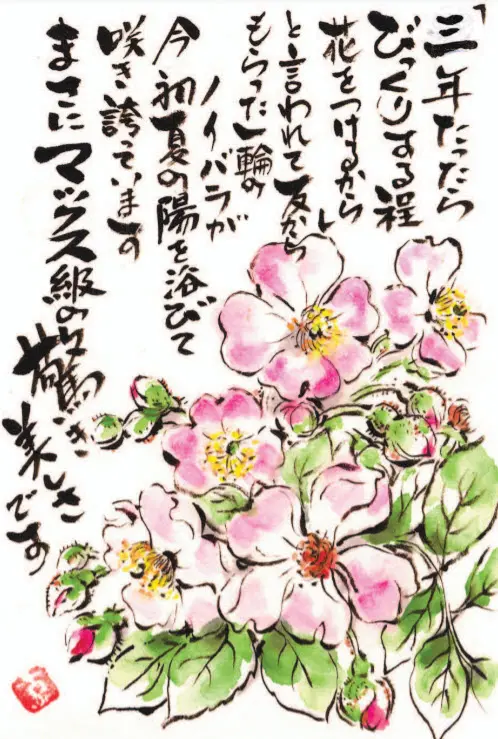 「三年たったら
びっくりする程
花をつけるから」
と言われて友から
もらった一輪の
ノイバラが
今初夏の陽を浴びて
咲き誇っています
まさにマックス級の驚き
美しさです